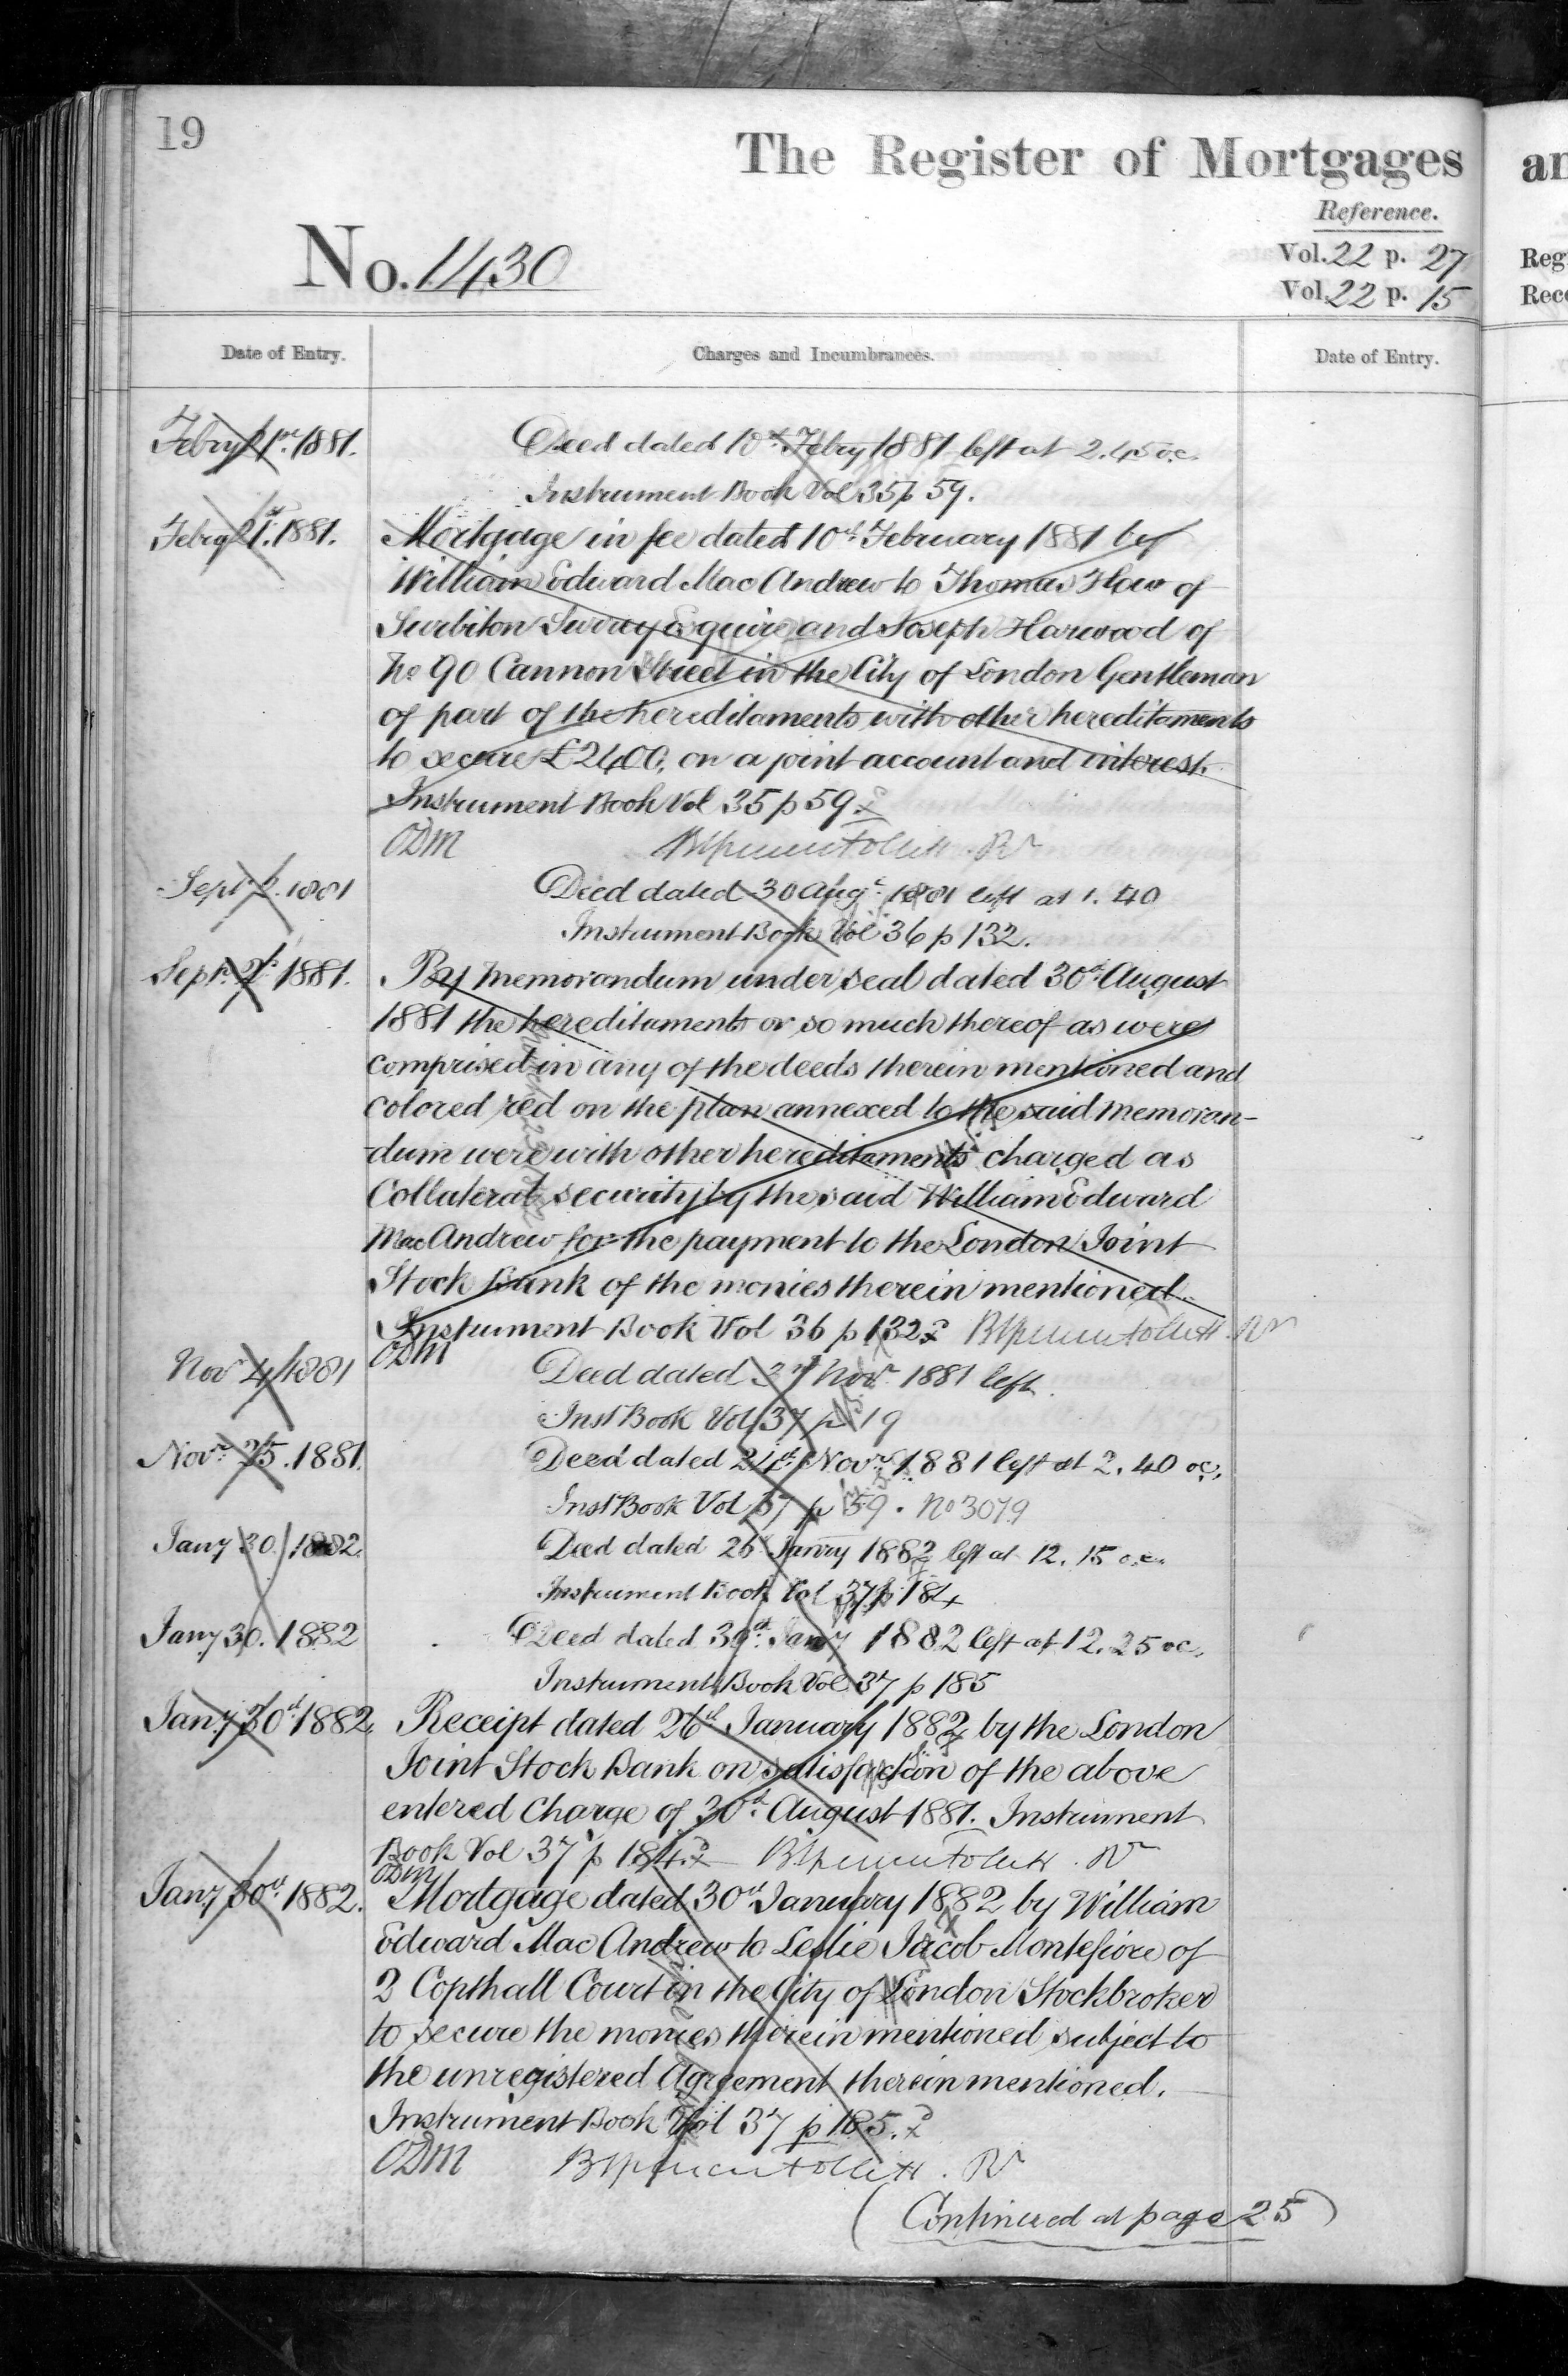 19
The Register of Mortgages
an
Reference.
No. 1430
Vol. 22 p. 27
Reg
Vol. 22 p. 15
Rec
Date of Entry.
Charges and Incumbrances.
Date of Entry.
Febry 21st 1881.
Deed dated 10th Febry 1881 left at 2.45 oc.
Instrument Book Vol 35 p 59.
Febry 21st 1881.
Mortgage in fee dated 10th February 1881 by
William Edward Mac Andrew to Thomas How of
Surbiton Surrey Esquire and Joseph Harwood of
No 90 Cannon Street in the City of London Gentleman
of part of the hereditaments with other hereditaments
to secure £2400, on a joint account and interest.
Instrument Book Vol 35 p 59.
ODM
Rr
Septr 2. 1881
Deed dated 30 Augt 1881 left at 1.40
Instrument Book Vol 36 p 132.
Septr 2d 1881.
By memorandum under seal dated 30th August
1881 the hereditaments or so much thereof as were
comprised in any of the deeds therein mentioned and
colored red on the plan annexed to the said memoran-
-dum were with other hereditaments charged as
Collateral security by the said William Edward
Mac Andrew for the payment to the London Joint
Stock Bank of the monies therein mentioned.
Instrument Book Vol 36 p 132
Rr
ODM
Nov 4 1881
Deed dated 3rd Novr 1881 left.
Inst Book Vol 37 p 19
Novr 25. 1881.
Deed dated Novr 1881 left at 2.40 oc,
Inst Book Vol 37 p 59. No 3079
Jany 30. 1882.
Deed dated 26 Janry 1882 left at 12.15 oc.
Instrument Book Vol 37 p 184
Jany 30. 1882
Deed dated 30th Jany 1882 left at 12.25 oc.
Instrument Book Vol 37 p 185
Jany 30th 1882,
Receipt dated 26th January 1882 by the London
Joint Stock Bank on satisfaction of the above
entered Charge of 30th August 1881. Instrument
Book Vol 37 p 184.
Rr
ODM
Jany 30th 1882.
Mortgage dated 30th January 1882 by William
Edward Mac Andrew to Leslie Jacob Montefiore of
2 Copthall Court in the City of London Stockbroker
to secure the monies therein mentioned subject to
the unregistered Agreement therein mentioned.
Instrument Book Vol 37 p 185.
ODM
Rr
(Continued at page 25)